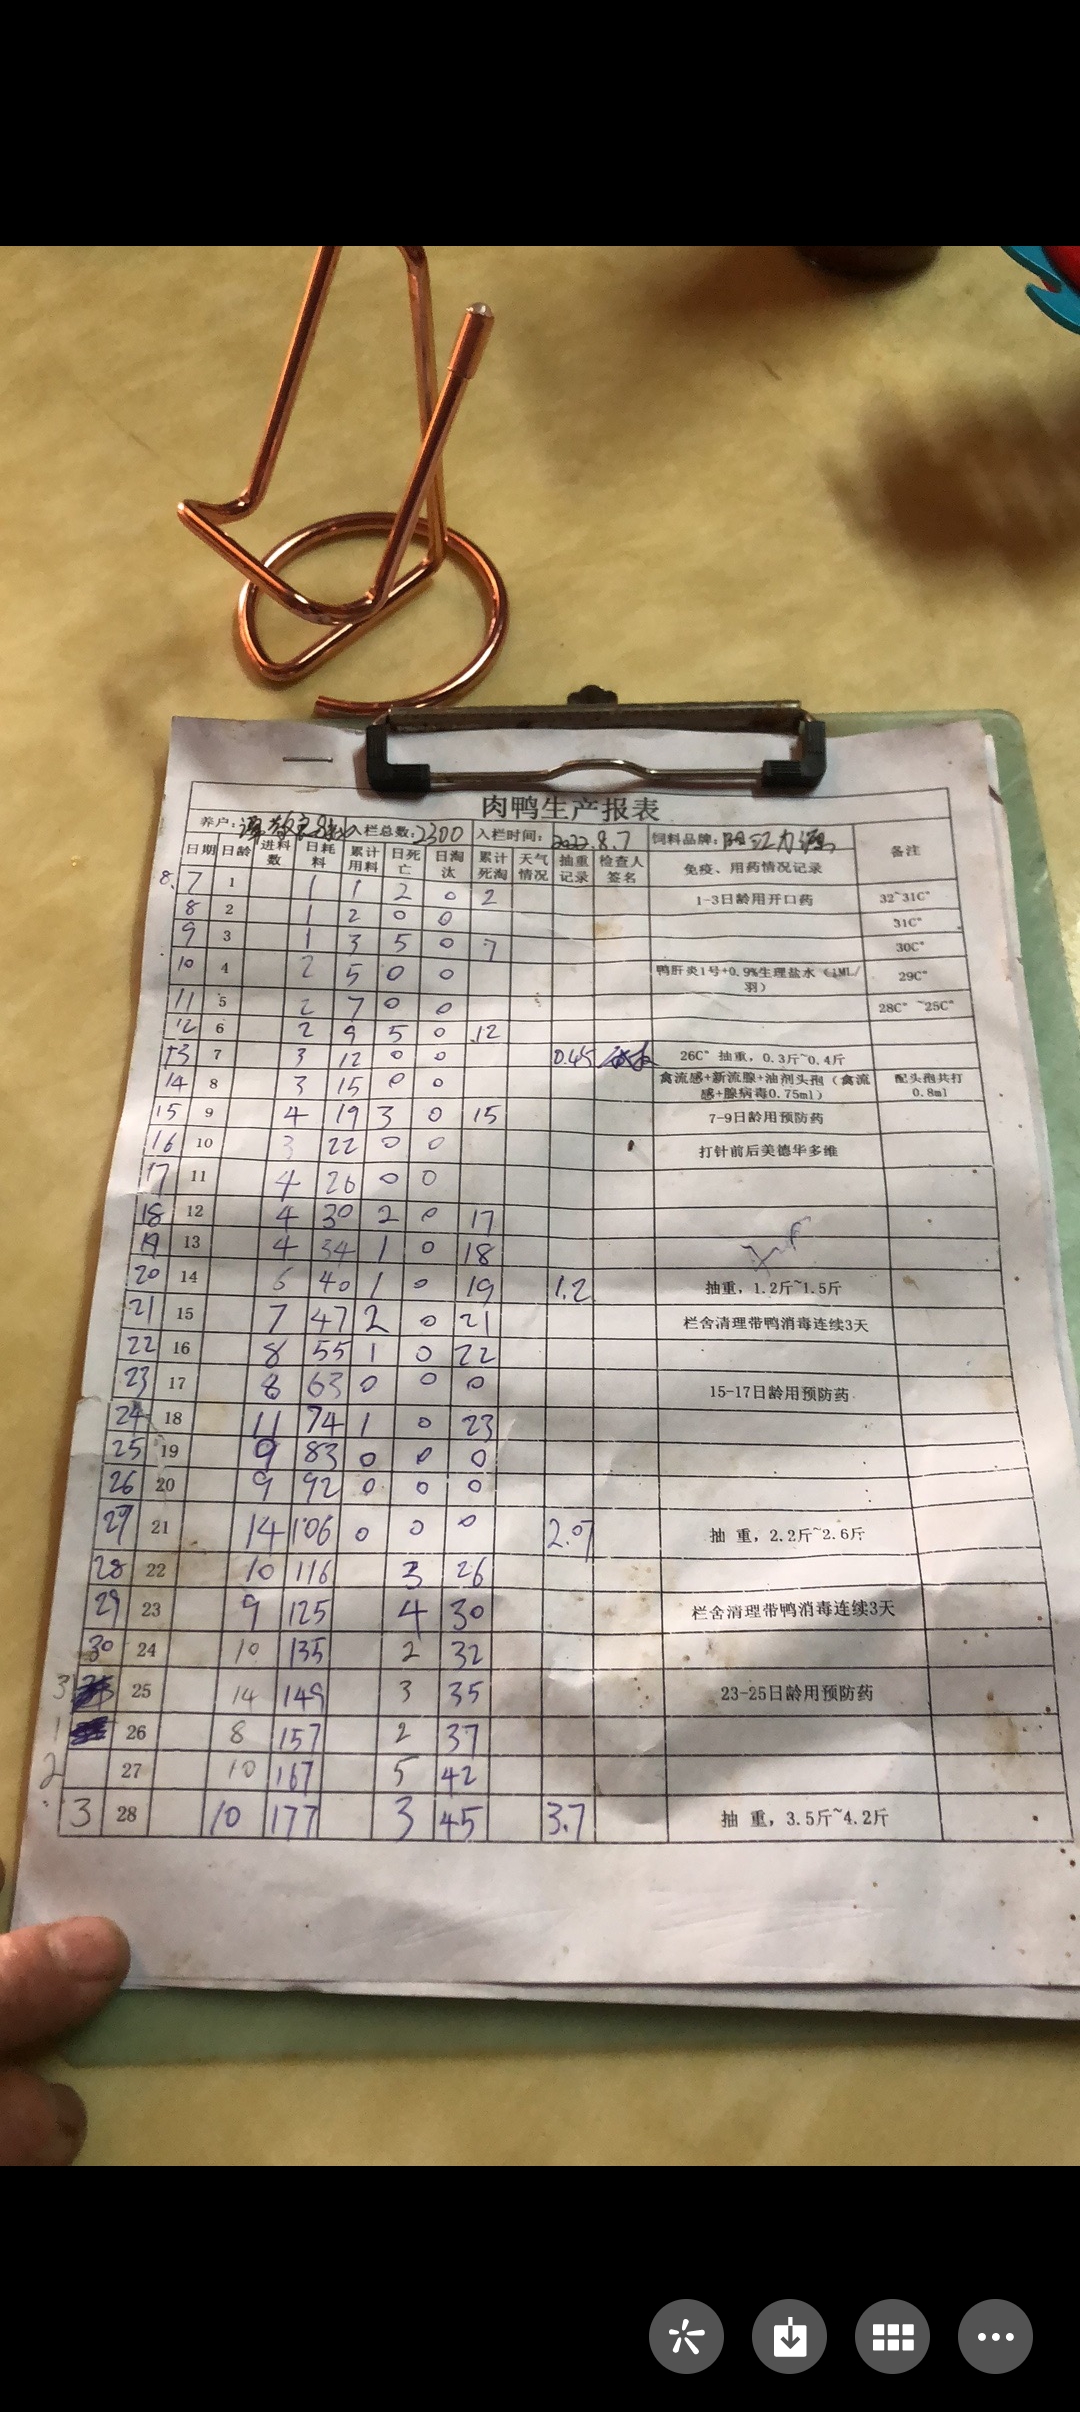 肉鸭生产报表
养户: 入栏总数:2300 入栏时间:2022.8.7 饲料品牌: 备注
日期 日龄 进料数 日耗料 累计用料 日死亡 日淘汰 累计死淘 天气情况 抽重记录 检查人签名 免疫、用药情况记录
8. 7 1 1 1 2 0 2 1-3日龄用开口药 32~31C°
8 2 1 2 0 0 31C°
9 3 1 3 5 0 7 30C°
10 4 2 5 0 0 鸭肝炎1号+0.9%生理盐水（1ML/羽） 29C°
11 5 2 7 0 0 28C° ~25C°
12 6 2 9 5 0 12
13 7 3 12 0 0 0.45 26C° 抽重，0.3斤~0.4斤
14 8 3 15 0 0 禽流感+新流腺+油剂头孢（禽流感+腺病毒0.75ml） 配头孢共打0.8ml
15 9 4 19 3 0 15 7-9日龄用预防药
16 10 3 22 0 0 打针前后美德华多维
17 11 4 26 0 0
18 12 4 30 2 0 17
19 13 4 34 1 0 18
20 14 6 40 1 0 19 1.2 抽重，1.2斤~1.5斤
21 15 7 47 2 0 21 栏舍清理带鸭消毒连续3天
22 16 8 55 1 0 22
23 17 8 63 0 0 0 15-17日龄用预防药
24 18 11 74 1 0 23
25 19 9 83 0 0 0
26 20 9 92 0 0 0
27 21 14 106 0 0 0 2.07 抽 重，2.2斤~2.6斤
28 22 10 116 3 26
29 23 9 125 4 30 栏舍清理带鸭消毒连续3天
30 24 10 135 2 32
25 14 149 3 35 23-25日龄用预防药
1 26 8 157 2 37
2 27 10 167 5 42
3 28 10 177 3 45 3.7 抽 重，3.5斤~4.2斤